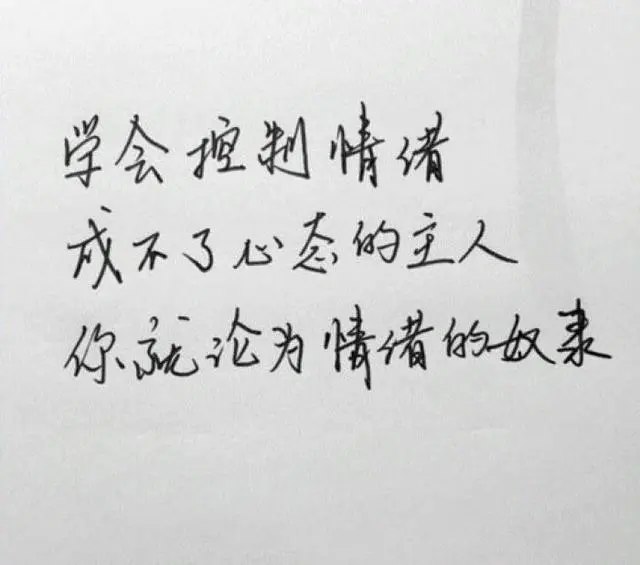 学会控制情绪
成不了心态的主人
你就沦为情绪的奴隶